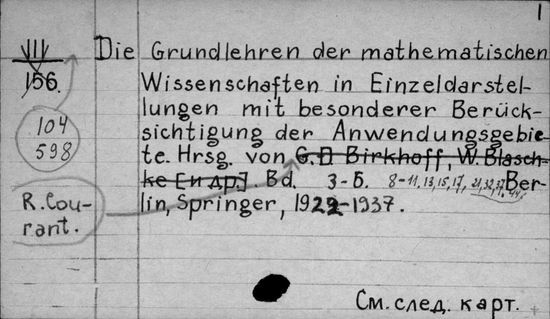 1
VII Die Grundlehren der mathematischen
156. Wissenschaften in Einzeldarstel-
lungen mit besonderer Berück-
104 sichtigung der Anwendungsgebie-
598 te. Hrsg. von G. D Birkhoff, W. Blasch-
ke [и др.]. Bd. 3-5. 8-11, 13, 15, 17, 21, 32, 37, 44. Ber-
R. Cou- lin, Springer, 1922-1937.
rant.
См. след. карт.